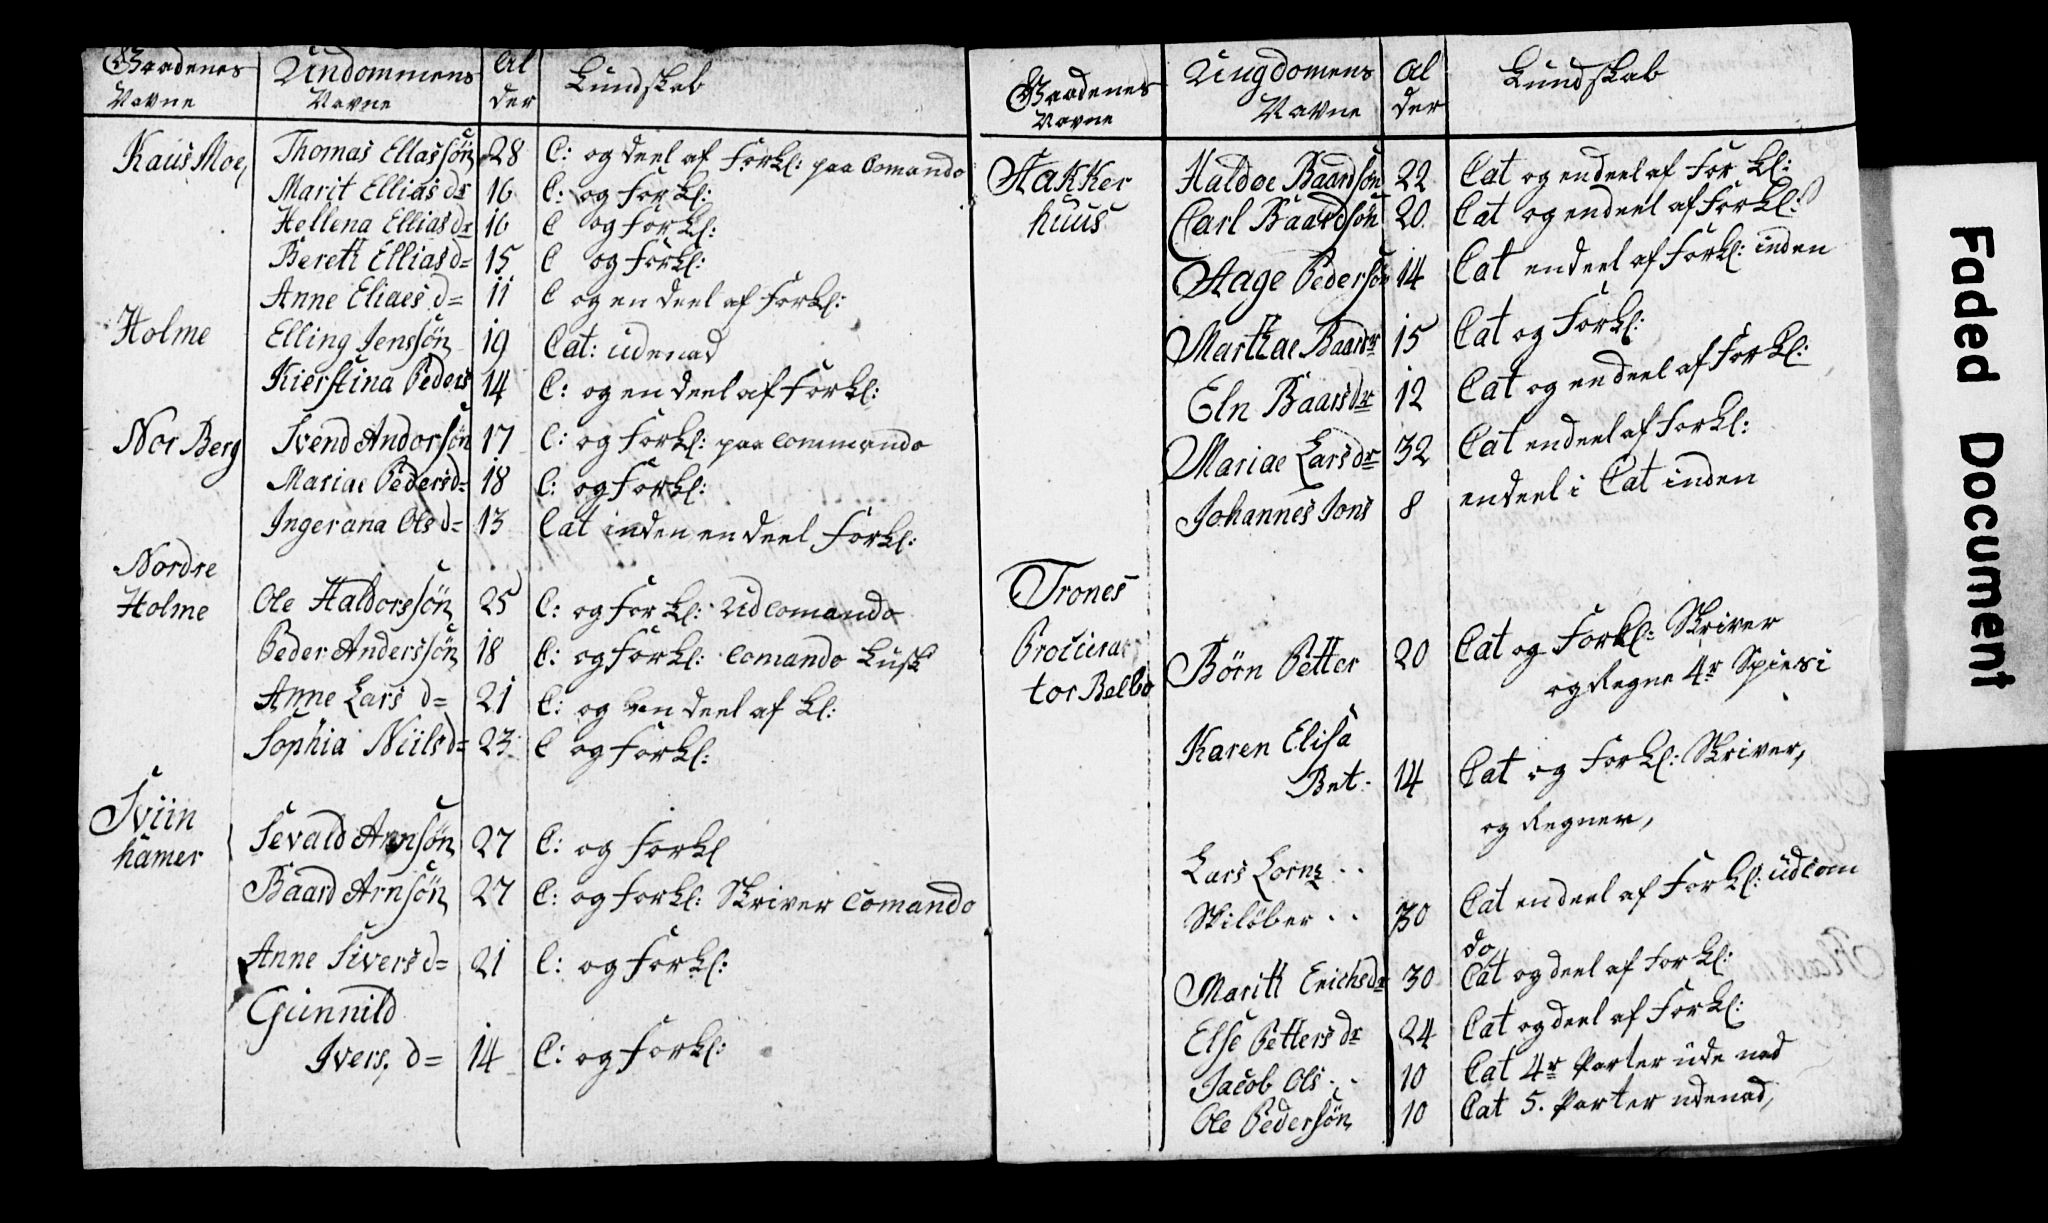 Gaardenes Undommens Al Kundskab
Navne Navne der
Kaus Moe, Thomas Ellassön 28 C: og deel af Forkl: paa Comando
Marit Ellias dr 16 C: og Forkl:
Hellena Ellias dr 16 C og Forkl:
Bereth Ellias d= 15 C og Forkl:
Anne Eliaes d= 11 C og en deel af Forkl:
Holme Elling Jenssön 19 Cat: udenad
Kierstina Peders 14 C: og en deel af Forkl:
Nor Berg Svend Andorsön 17 C: og Forkl: paa Commando
Mariae Pedersd= 18 C: og Forkl:
Ingerana Ols d= 13 Cat inden en deel Forkl:
Nordre
Holme Ole Haldorssön 25 C: og Forkl: Ud Comando
Peder Anderssön 18 C: og Forkl: Comando Lusk
Anne Lars d= 21 C: og en deel af kl:
Sophia Niilsd= 23 C og Forkl:
Sviin
hamer Sevald Arnsön 27 C: og Forkl
Baard Arnsön 27 C: og Forkl: Skriver Comando
Anne Sivers d= 21 C: og Forkl:
Gunnild
Ivers, d= 14 C: og Forkl:
Gaardenes Ungdomens Al Kundskab
Navne Navne der
Stakker Haldoe Baardsön 22 Cat og endeel af Forkl:
huus Carl Baardsön 20 Cat og endeel af Forkl:
Aage Pedersön 14 Cat endeel af Forkl: inden
Marthae Baardr 15 Cat og Forkl:
Eln Baarsdr 12 Cat og en deel af Forkl:
Mariae Larsdr 32 Cat endeel af Forkl:
Johannes Jons 8 endeel i Cat inden
Trones
Procura
tor Belbo Börn Petter 20 Cat og Forkl: Skriver
og Regne 4r Spiesi
Karen Elisa
Bet. 14 Cat og Forkl: Skriver,
og Regner,
Lars Lorns
Skilöber 30 Cat endeel af Forkl: udcom
do,
Marith Erichsdr 30 Cat og deel af Forkl:
Else Petters dr 24 Cat og deel af Forkl:
Jacob Ols 10 Cat 4r Parter ude nad
Ole Pedersön 10 Cat 5. Parter udenad,
Faded Document